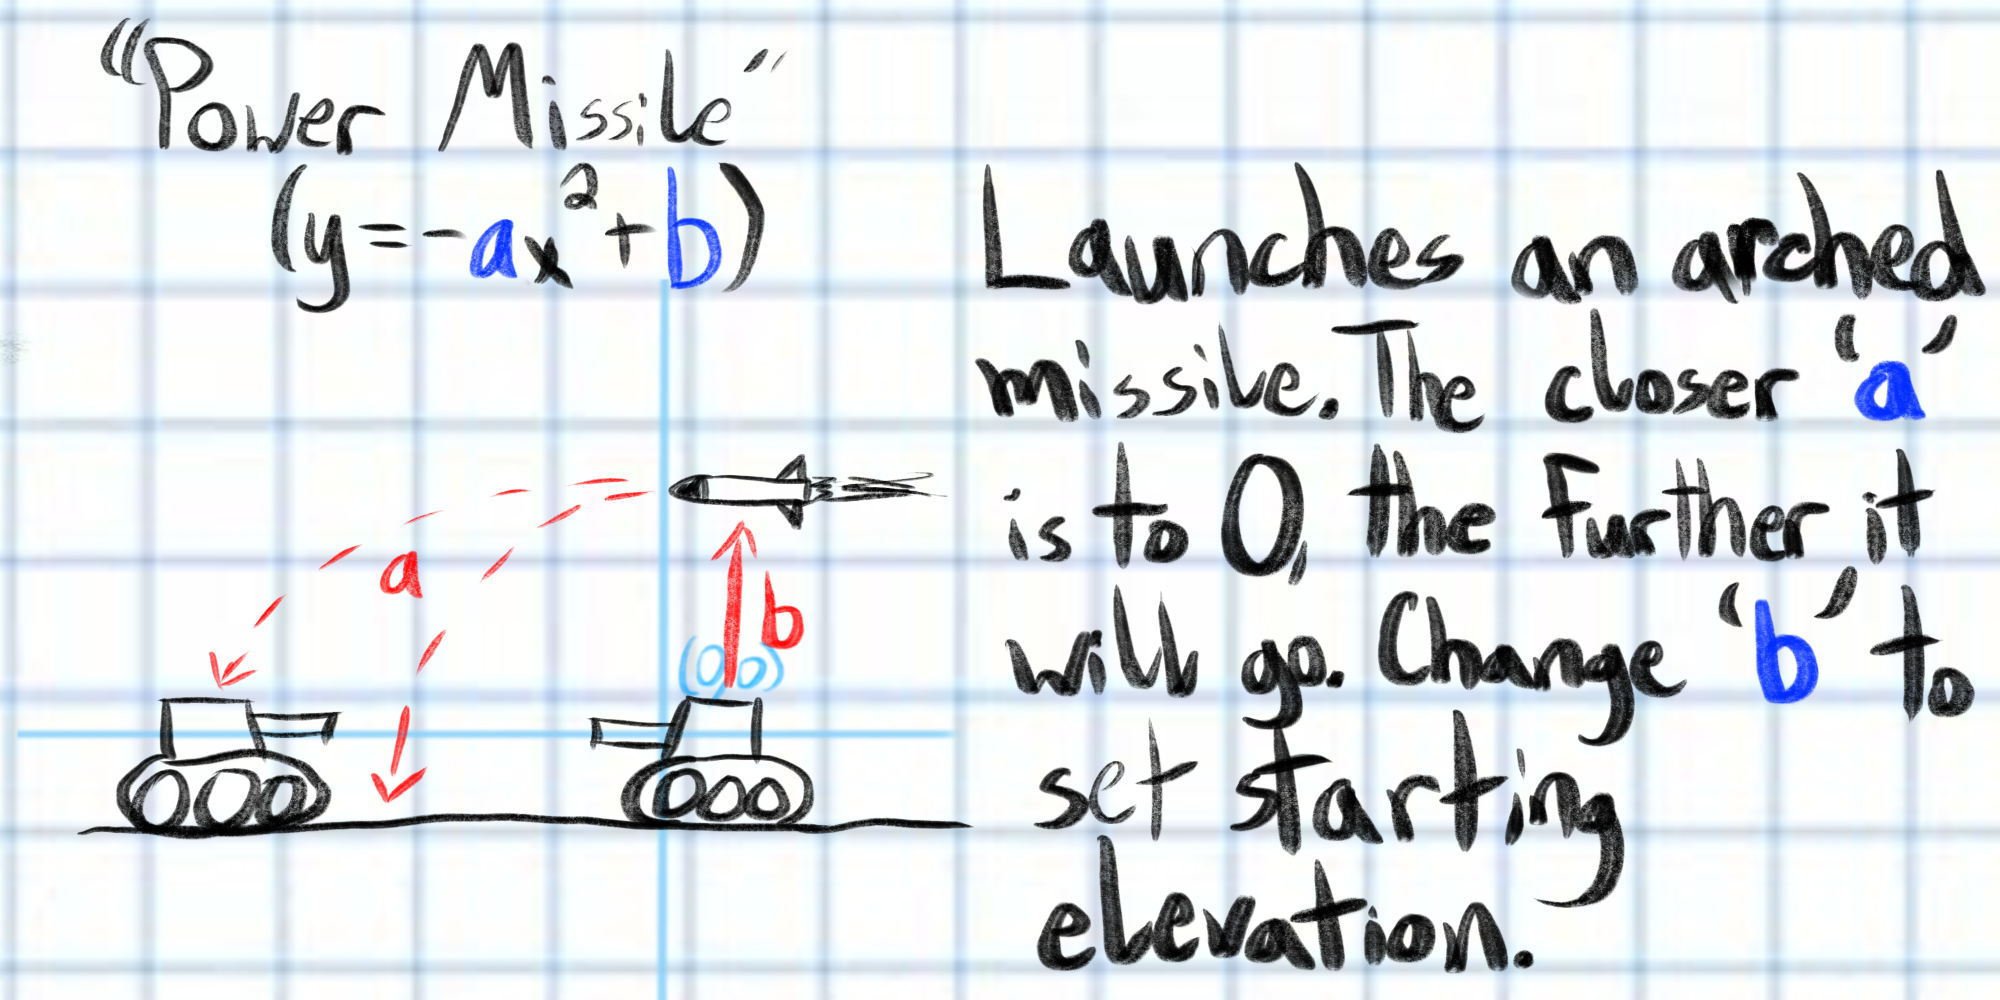 "Power Missile"
(y=-ax²+b)
Launches an arched
missile. The closer 'a'
is to 0, the further it
will go. Change 'b' to
set starting
elevation.
a
b
(0,0)